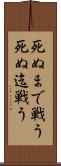 死ぬまで戦う
死ぬ迄戦う